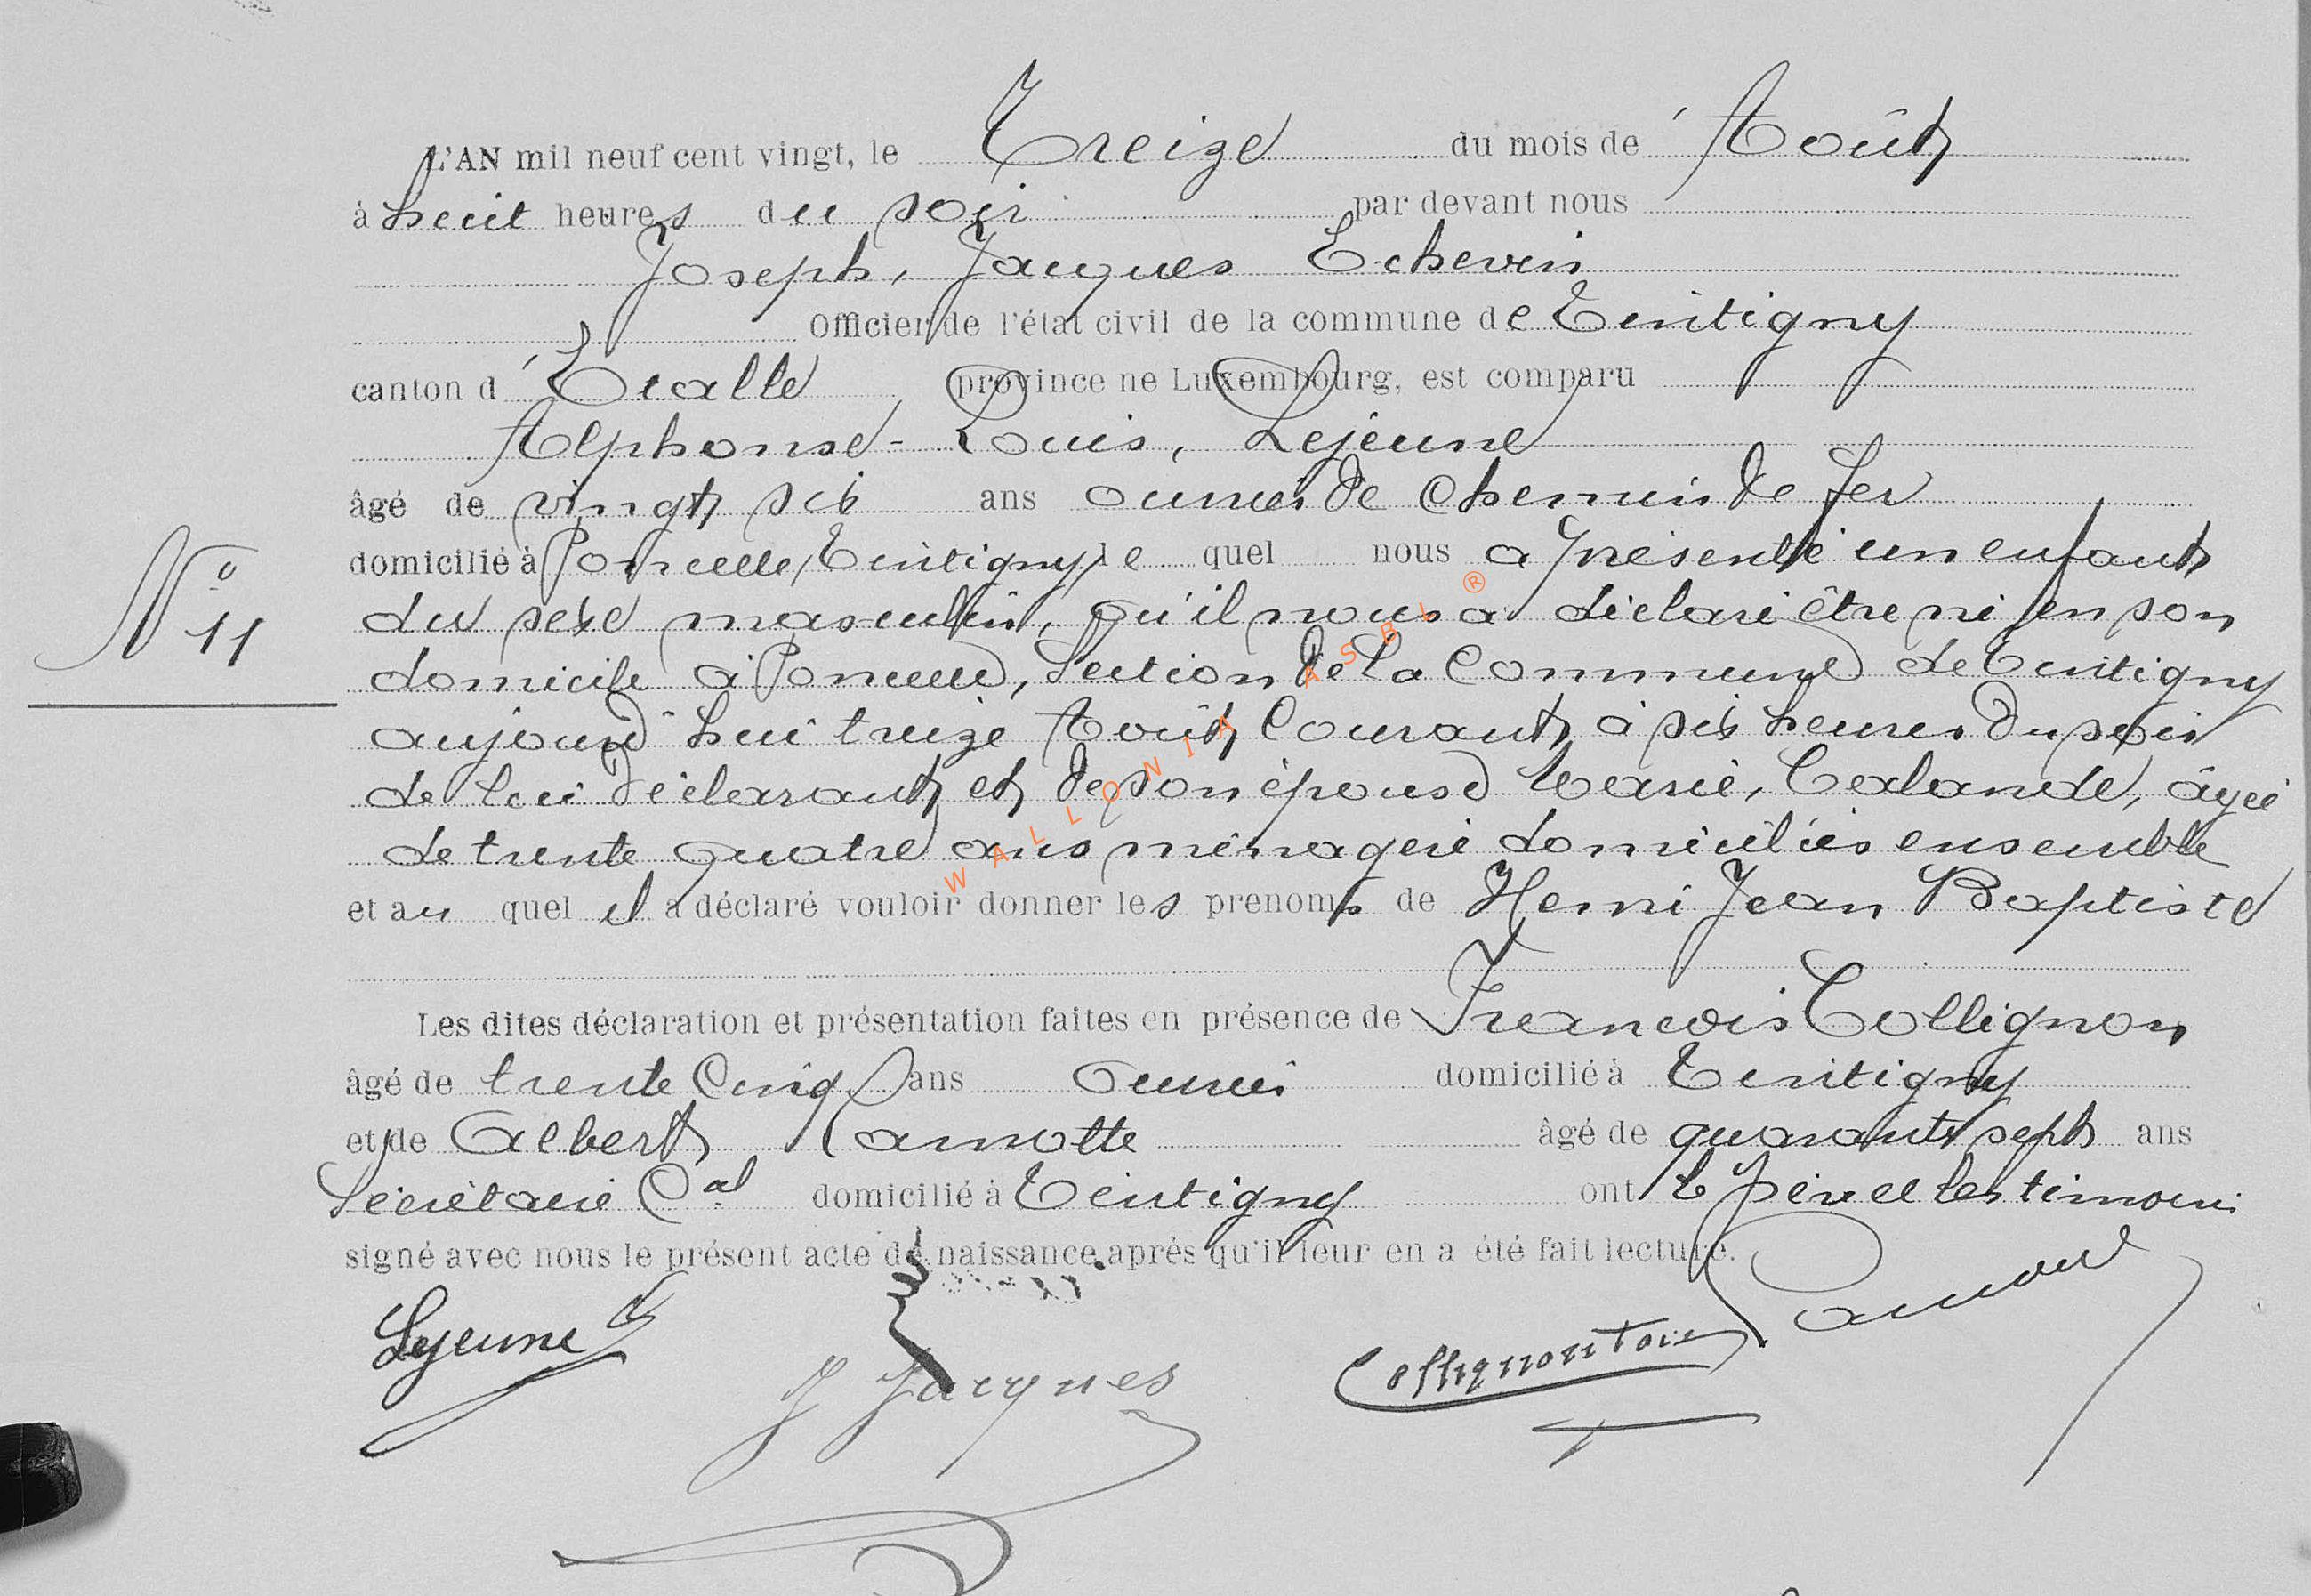 L'AN mil neuf cent vingt, le Treize du mois de Août
à huit heures du soir par devant nous
Joseph, Jacques Echevin
Officier de l'état civil de la commune de Tintigny
canton d'Etalle province ne Luxembourg, est comparu
Alphonse-Louis, Lejeune
âgé de vingt six ans ouvrier de chemin de fer
domicilié à Poncelle, Tintigny le quel nous a présenté un enfant
N° 11
du sexe masculin, qu'il nous a déclaré être né en son
domicile à Poncelle, Section de la Commune de Tintigny
aujourd'hui treize Août Courant à six heures du soir
de lui déclarant et de son épouse Marie, Calande, âgée
de trente quatre ans ménagère domiciliés ensemble
et au quel il a déclaré vouloir donner les prenoms de Henri Jean Baptiste
Les dites déclaration et présentation faites en présence de François Collignon
âgé de trente Cinq ans Ouvrier domicilié à Tintigny
et de Albert Lamotte âgé de quarante sept ans
Sécrétaire Cal domicilié à Tintigny ont le père et les témoins
signé avec nous le présent acte de naissance après qu'il leur en a été fait lecture.
Lejeune
J Jacques
Collignon
WALLONIA ASBL ®